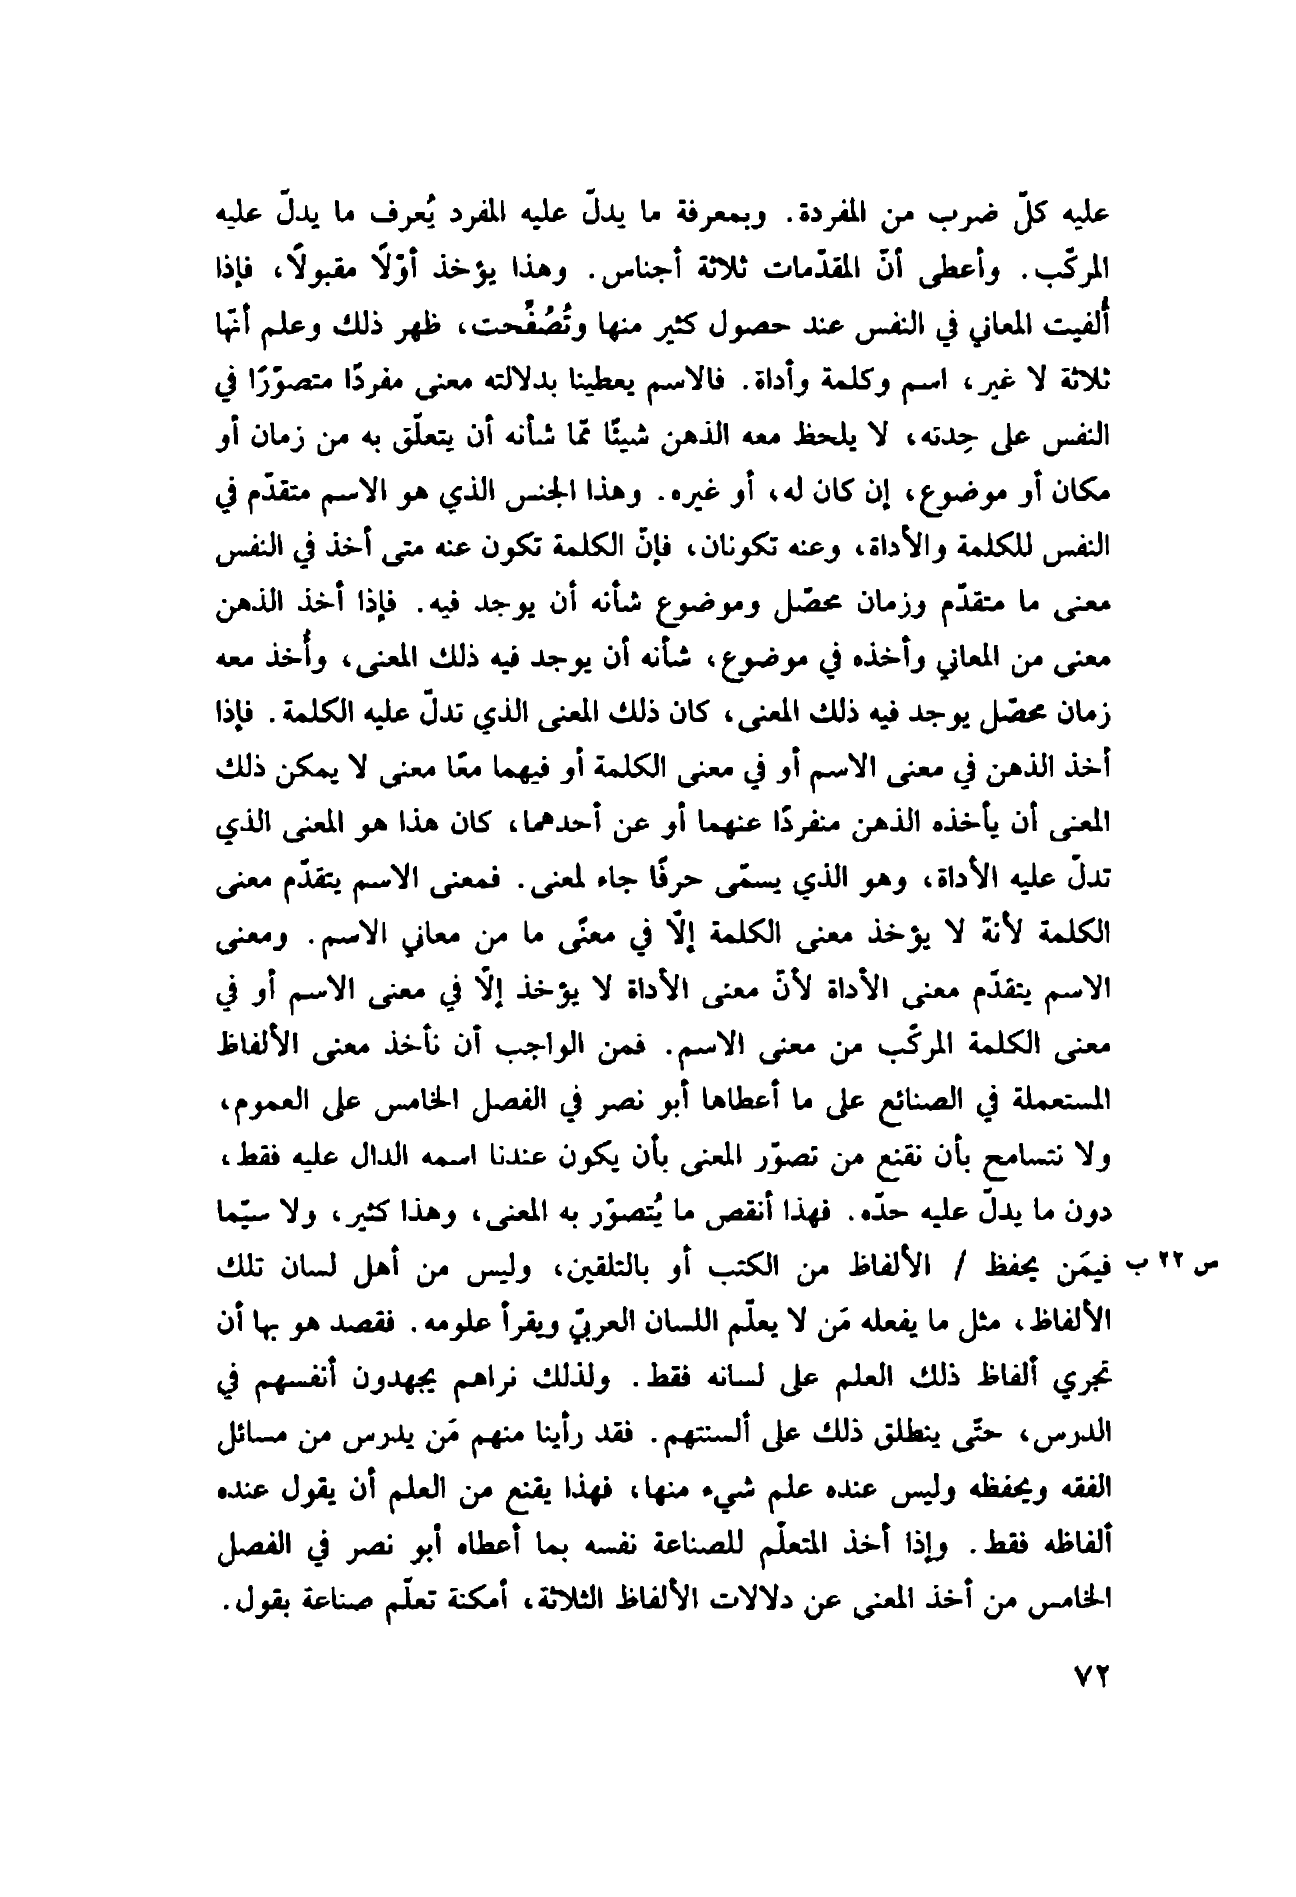 عليه كلّ ضرب من المفردة. وبمعرفة ما يدلّ عليه المفرد يُعرف ما يدلّ عليه
المركّب. وأعطى أنّ المقدّمات ثلاثة أجناس. وهذا يؤخذ أوّلًا مقبولًا، فإذا
أُلفيت المعاني في النفس عند حصول كثير منها وتُصُفِّحت، ظهر ذلك وعلم أنّها
ثلاثة لا غير، اسم وكلمة وأداة. فالاسم يعطينا بدلالته معنى مفردًا متصوّرًا في
النفس على حِدته، لا يلحظ معه الذهن شيئًا ممّا شأنه أن يتعلّق به من زمان أو
مكان أو موضوع، إن كان له، أو غيره. وهذا الجنس الذي هو الاسم متقدّم في
النفس للكلمة والأداة، وعنه تكونان، فإنّ الكلمة تكون عنه متى أخذ في النفس
معنى ما متقدّم وزمان محصّل وموضوع شأنه أن يوجد فيه. فإذا أخذ الذهن
معنى من المعاني وأخذه في موضوع، شأنه أن يوجد فيه ذلك المعنى، وأُخذ معه
زمان محصّل يوجد فيه ذلك المعنى، كان ذلك المعنى الذي تدلّ عليه الكلمة. فإذا
أخذ الذهن في معنى الاسم أو في معنى الكلمة أو فيهما معًا معنى لا يمكن ذلك
المعنى أن يأخذه الذهن منفردًا عنهما أو عن أحدهما، كان هذا هو المعنى الذي
تدلّ عليه الأداة، وهو الذي يسمّى حرفًا جاء لمعنى. فمعنى الاسم يتقدّم معنى
الكلمة لأنّه لا يؤخذ معنى الكلمة إلّا في معنًى ما من معاني الاسم. ومعنى
الاسم يتقدّم معنى الأداة لأنّ معنى الأداة لا يؤخذ إلّا في معنى الاسم أو في
معنى الكلمة المركّب من معنى الاسم. فمن الواجب أن نأخذ معنى الألفاظ
المستعملة في الصنائع على ما أعطاها أبو نصر في الفصل الخامس على العموم،
ولا نتسامع بأن نقنع من تصوّر المعنى بأن يكون عندنا اسمه الدال عليه فقط،
دون ما يدلّ عليه حدّه. فهذا أنقص ما يُتصوّر به المعنى، وهذا كثير، ولا سيّما
فيمَن يحفظ / الألفاظ من الكتب أو بالتلقين، وليس من أهل لسان تلك ص ٢٢ ب
الألفاظ، مثل ما يفعله مَن لا يعلّم اللسان العربيّ ويقرأ علومه. فقصد هو بها أن
تجري ألفاظ ذلك العلم على لسانه فقط. ولذلك نراهم يجهدون أنفسهم في
الدرس، حتّى ينطلق ذلك على ألسنتهم. فقد رأينا منهم مَن يدرس من مسائل
الفقه ويحفظه وليس عنده علم شيء منها، فهذا يقنع من العلم أن يقول عنده
ألفاظه فقط. وإذا أخذ المتعلّم للصناعة نفسه بما أعطاه أبو نصر في الفصل
الخامس من أخذ المعنى عن دلالات الألفاظ الثلاثة، أمكنة تعلّم صناعة بقول.
٧٢